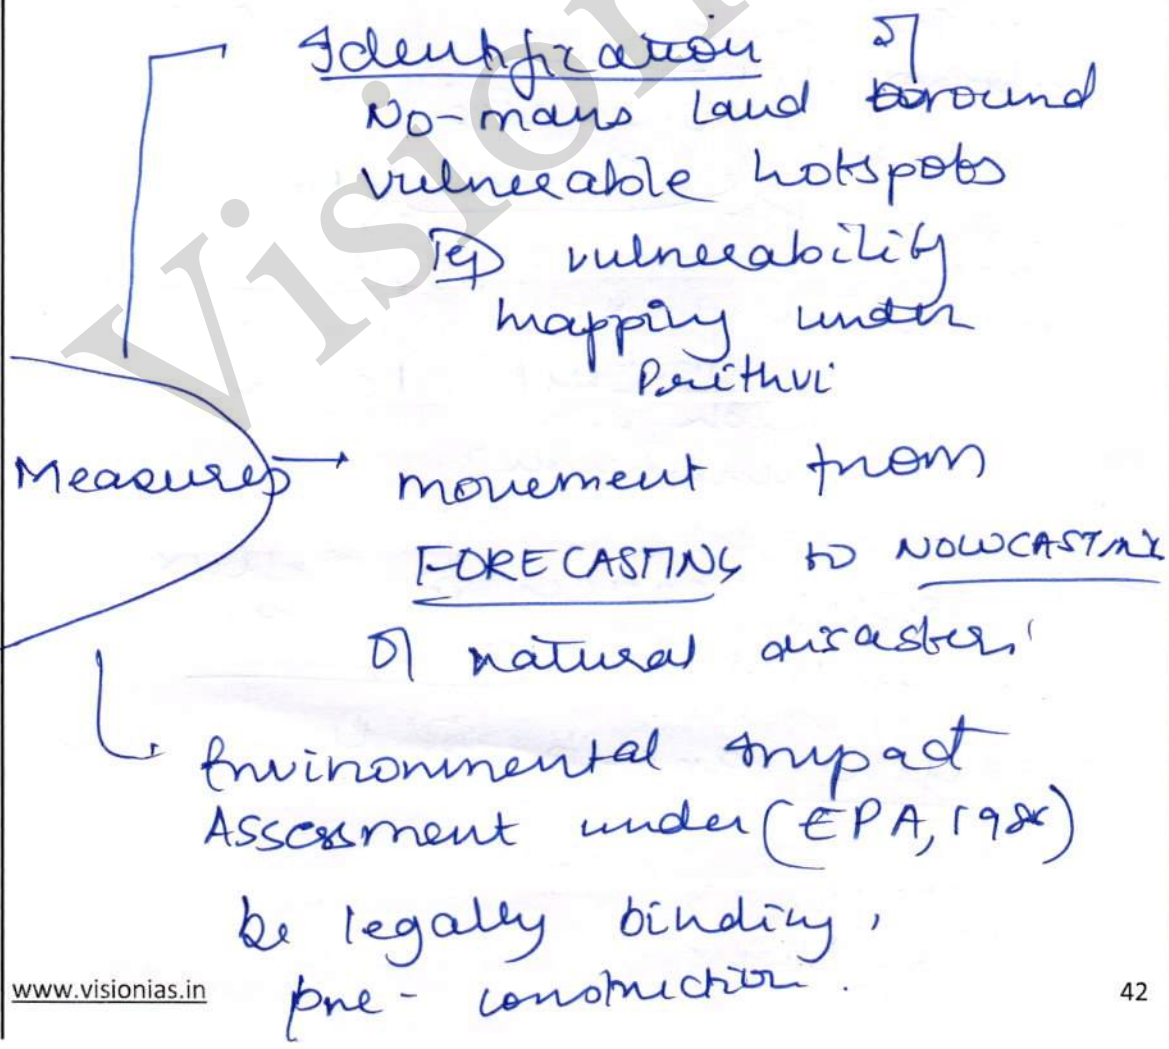 Identification of
No-mans Land around
vulnerable hotspots
Eg vulnerability
mapping under
Prithvi
Measures → movement from
FORECASTING to NOWCASTING
of natural disasters
Environmental Impact
Assessment under (EPA, 1986)
be legally binding,
pre - construction.
www.visionias.in
42
Vision